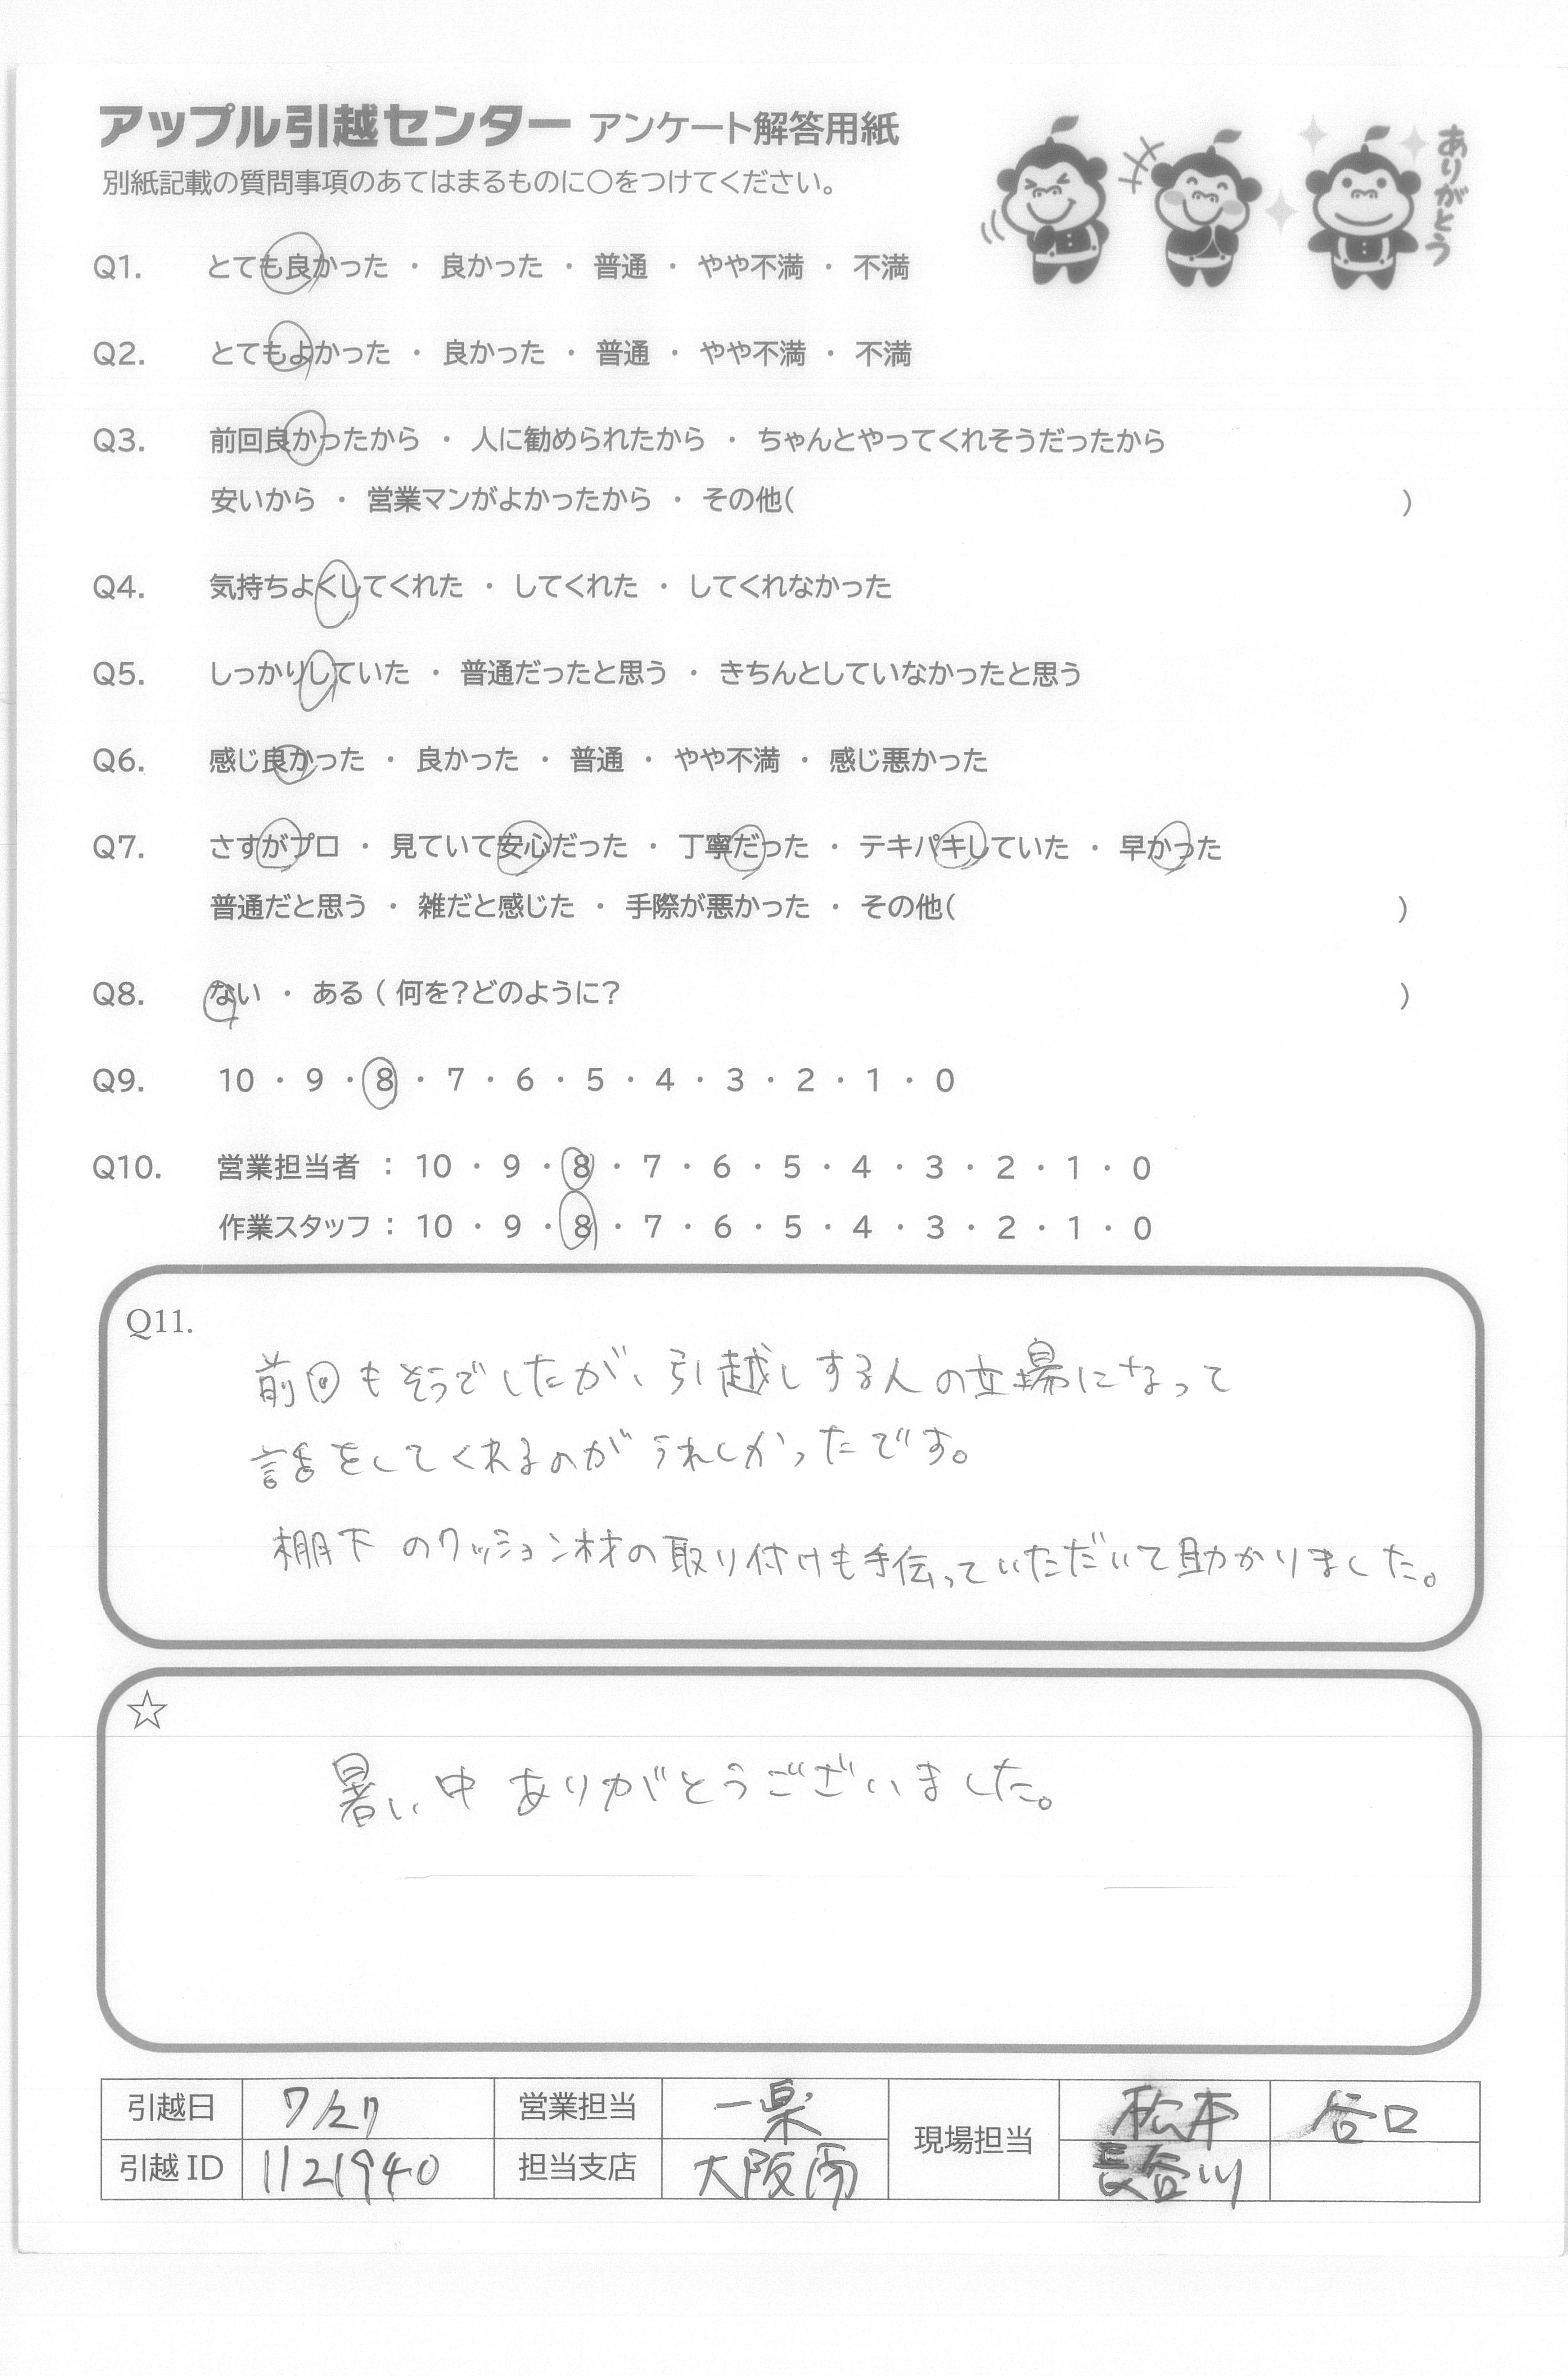 アップル引越センター アンケート解答用紙
別紙記載の質問事項のあてはまるものに○をつけてください。
ありがとう
Q1. とても良かった ・ 良かった ・ 普通 ・ やや不満 ・ 不満
Q2. とてもよかった ・ 良かった ・ 普通 ・ やや不満 ・ 不満
Q3. 前回良かったから ・ 人に勧められたから ・ ちゃんとやってくれそうだったから
安いから ・ 営業マンがよかったから ・ その他( )
Q4. 気持ちよくしてくれた ・ してくれた ・ してくれなかった
Q5. しっかりしていた ・ 普通だったと思う ・ きちんとしていなかったと思う
Q6. 感じ良かった ・ 良かった ・ 普通 ・ やや不満 ・ 感じ悪かった
Q7. さすがプロ ・ 見ていて安心だった ・ 丁寧だった ・ テキパキしていた ・ 早かった
普通だと思う ・ 雑だと感じた ・ 手際が悪かった ・ その他( )
Q8. ない ・ ある ( 何を?どのように? )
Q9. 10 ・ 9 ・ 8 ・ 7 ・ 6 ・ 5 ・ 4 ・ 3 ・ 2 ・ 1 ・ 0
Q10. 営業担当者 : 10 ・ 9 ・ 8 ・ 7 ・ 6 ・ 5 ・ 4 ・ 3 ・ 2 ・ 1 ・ 0
作業スタッフ : 10 ・ 9 ・ 8 ・ 7 ・ 6 ・ 5 ・ 4 ・ 3 ・ 2 ・ 1 ・ 0
Q11.
前回もそうでしたが、引越しする人の立場になって
話をしてくれるのがうれしかったです。
棚下のクッション材の取り付けも手伝っていただいて助かりました。
☆
暑い中ありがとうございました。
引越日 7/27 営業担当 一楽 現場担当 松本 谷口
引越ID 1121940 担当支店 大阪南 長谷川